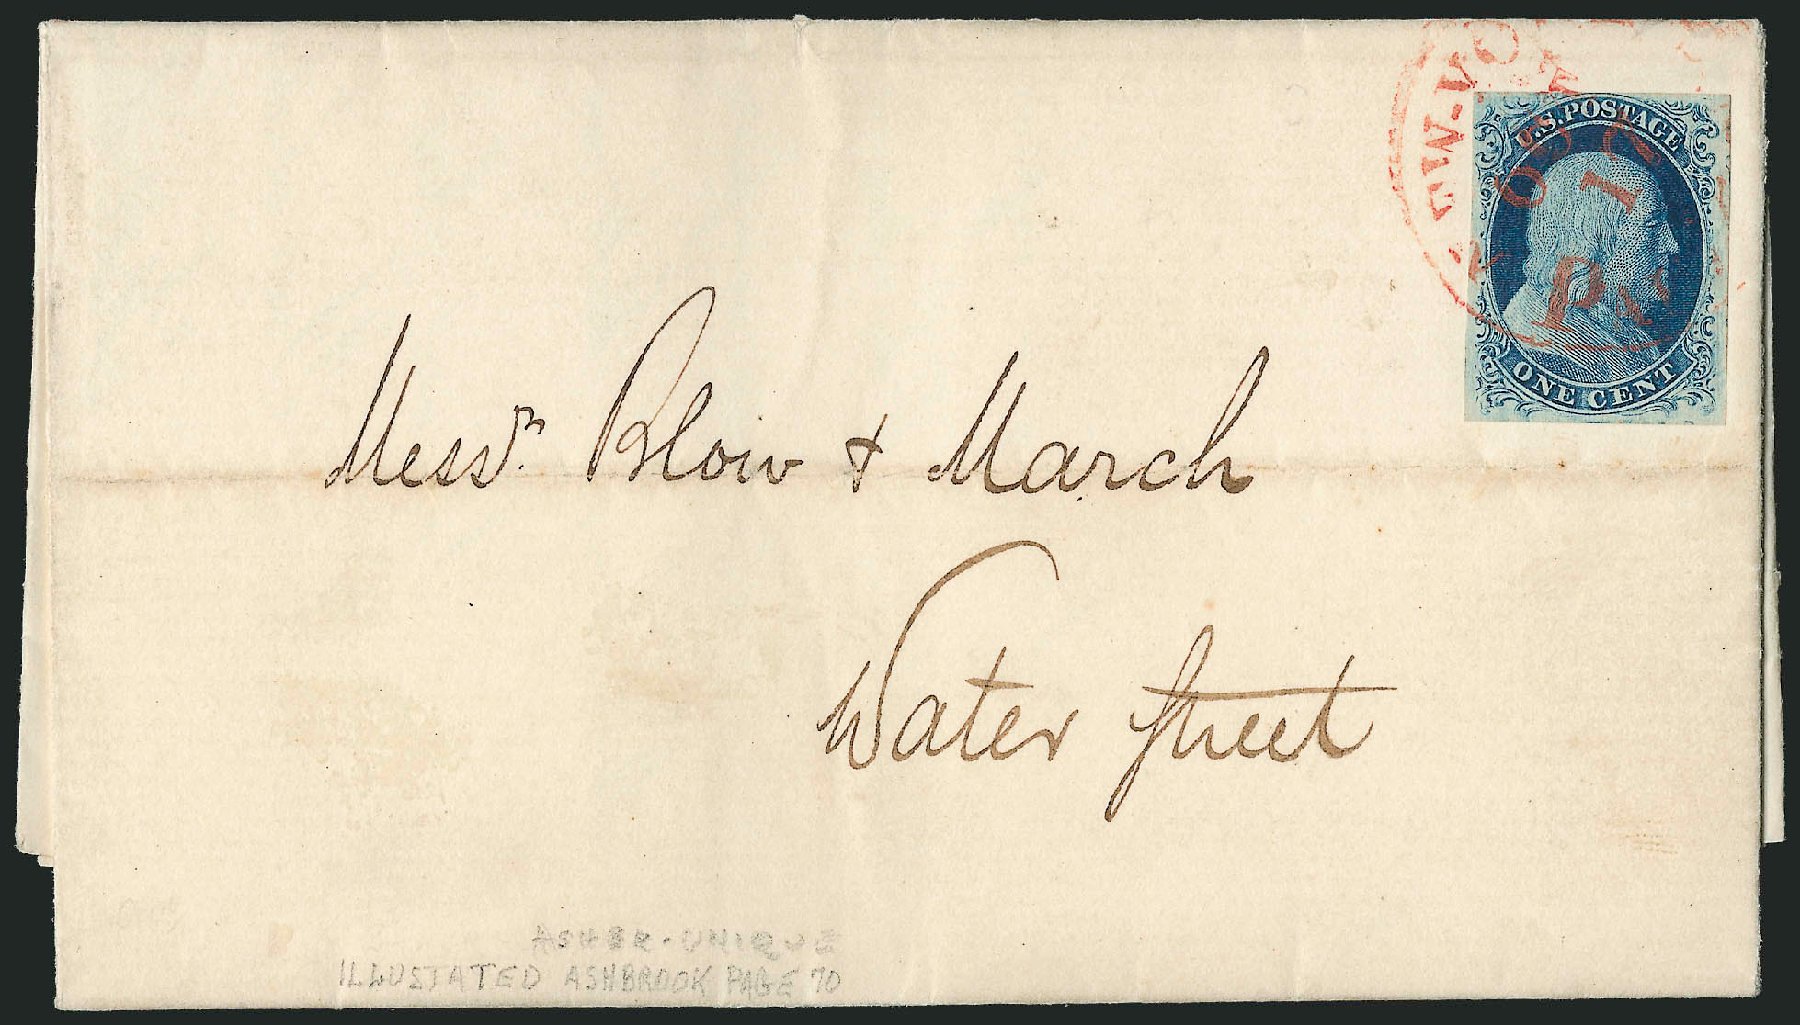 U.S. POSTAGE
ONE CENT
Messrs. Blow & March
Water Street
UNIQUE
ILLUSTATED ASHBROOK PAGE 70